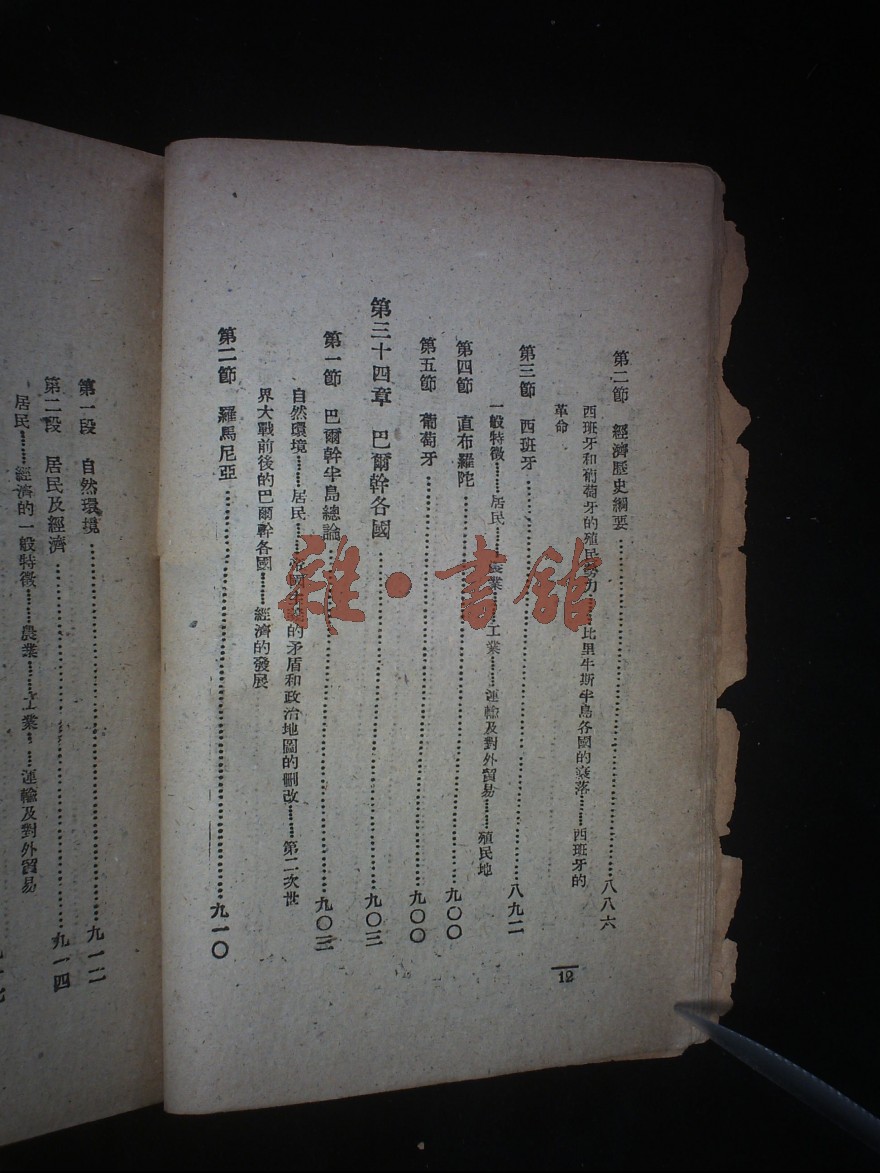 第二節　經濟歷史綱要……八八六
西班牙和葡萄牙的殖民勢力……比里牛斯半島各國的衰落……西班牙的
革命
第三節　西班牙……八九二
一般特徵……居民……農業……工業……運輸及對外貿易……殖民地
第四節　直布羅陀……九〇〇
第五節　葡萄牙……九〇〇
第三十四章　巴爾幹各國……九〇三
第一節　巴爾幹半島總論……九〇三
自然環境……居民……帝國主義的矛盾和政治地圖的刪改……第二次世
界大戰前後的巴爾幹各國……經濟的發展
第二節　羅馬尼亞……九一〇
12
第一段　自然環境……九一二
第二段　居民及經濟……九一四
居民……經濟的一般特徵……農業……工業……運輸及對外貿易
雜·書館